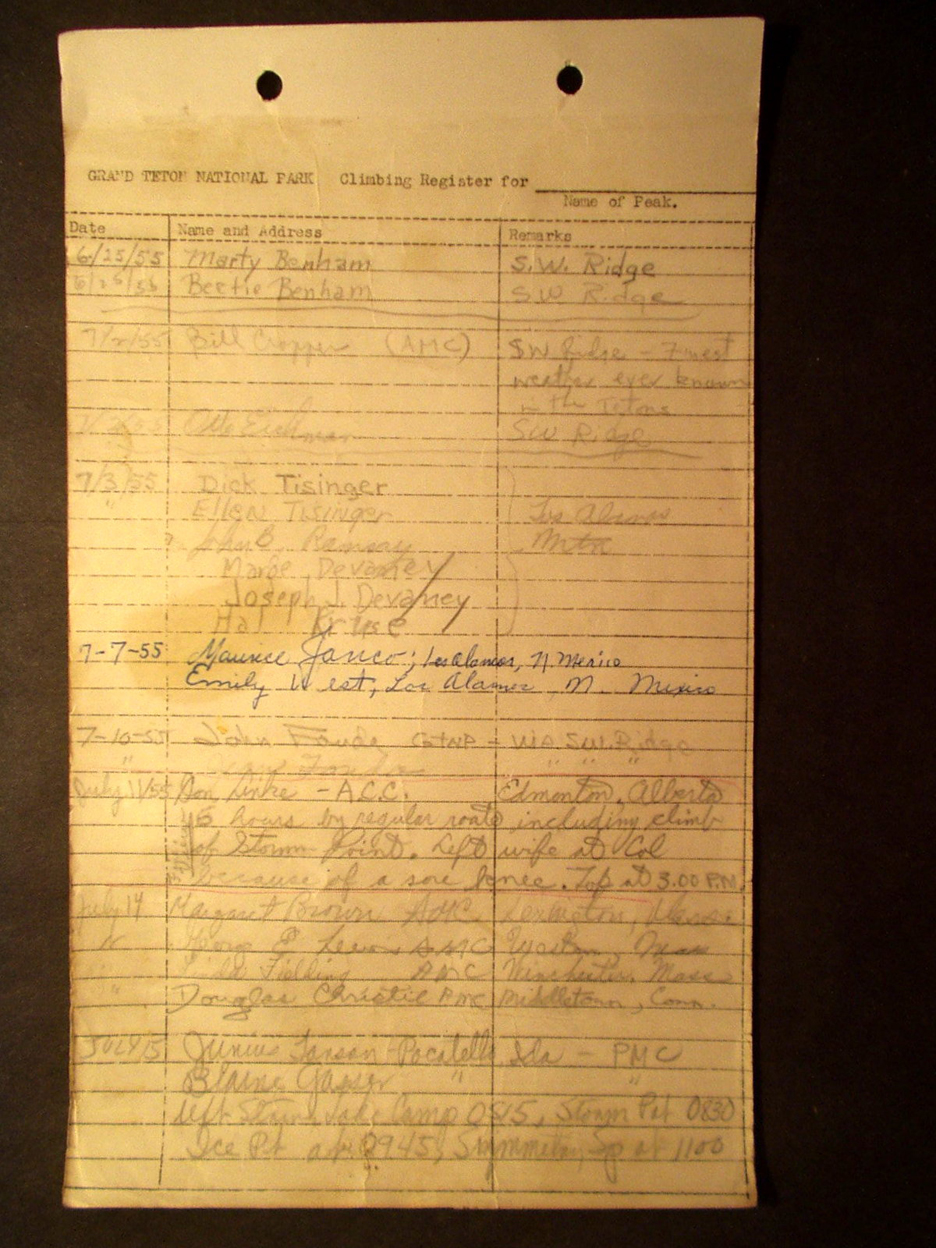 GRAND TETON NATIONAL PARK Climbing Register for
Name of Peak.
Date Name and Address Remarks
6/25/55 Marty Benham S.W. Ridge
6/25/55 Bertie Benham SW Ridge
7/2/55 Bill Cropper (AMC) SW Ridge - 7 most
weather ever known
in the Tetons
Otto Eichman SW Ridge
7/3/55 Dick Tisinger
" Ellen Tisinger Los Alamos
John B. Ramsay Mtn
Marge Devaney
Joseph J. Devaney
Hal Kruse
7-7-55 Maurice Janco; Los Alamos, N Mexico
Emily West, Los Alamos N. Mexico
7-10-55 John Fonda GTNP - via S.W. Ridge
" Fonda " " "
July 11/55 Don Linke - A.C.C. Edmonton, Alberta
hours by regular route including climb
of Storm Point. Left wife at Col
because of a sore knee. Top at 3.00 P.M.
July 14 Margaret Brown AMC Lexington, Mass.
" E. AMC Weston, Mass
" Fielding AMC Winchester, Mass
" Douglas Christie AMC Middletown, Conn.
JULY 15 Junius Larson Pocatello, Ida - PMC
Blaine Gasser " "
left String Lake Camp 0815, Storm Pnt 0830
Ice Pt at 0945, Symmetry Sp at 1100